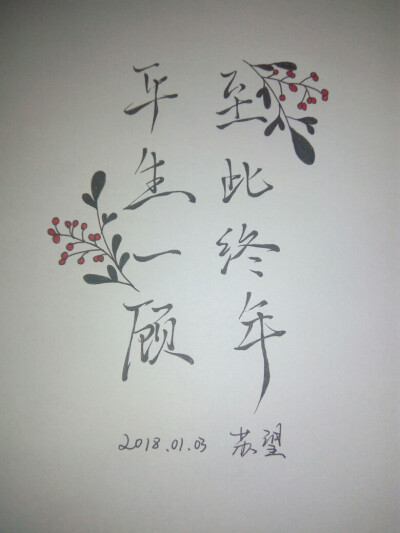 平生一顾
至此终年
2018.01.03 苏望